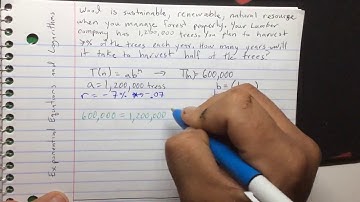 Wood is sustainable, renewable, natural resource
when you manage forest properly. Your lumber
company has 1,200,000 trees. You plan to harvest
7% of the trees each year. How many years will
it take to harvest half of the trees?
T(n) = abⁿ → T(n) = 600,000
a = 1,200,000 trees b = (1
r = -7% → -.07
600,000 = 1,200,000
Exponential Equations and Logarithms